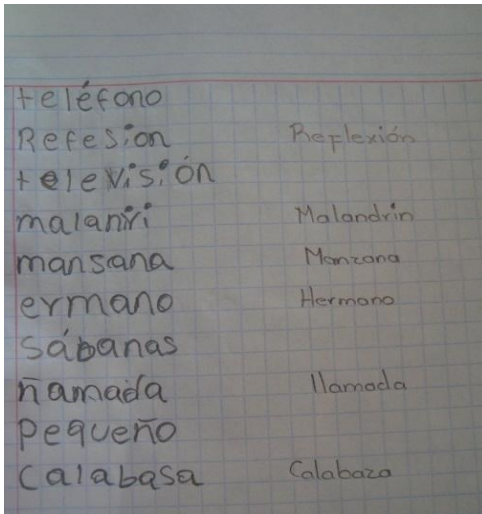 teléfono
Refesion Reflexión
televisión
malanrri Malandrin
mansana Manzana
ermano Hermano
sábanas
ñamada llamada
pequeño
calabasa Calabaza